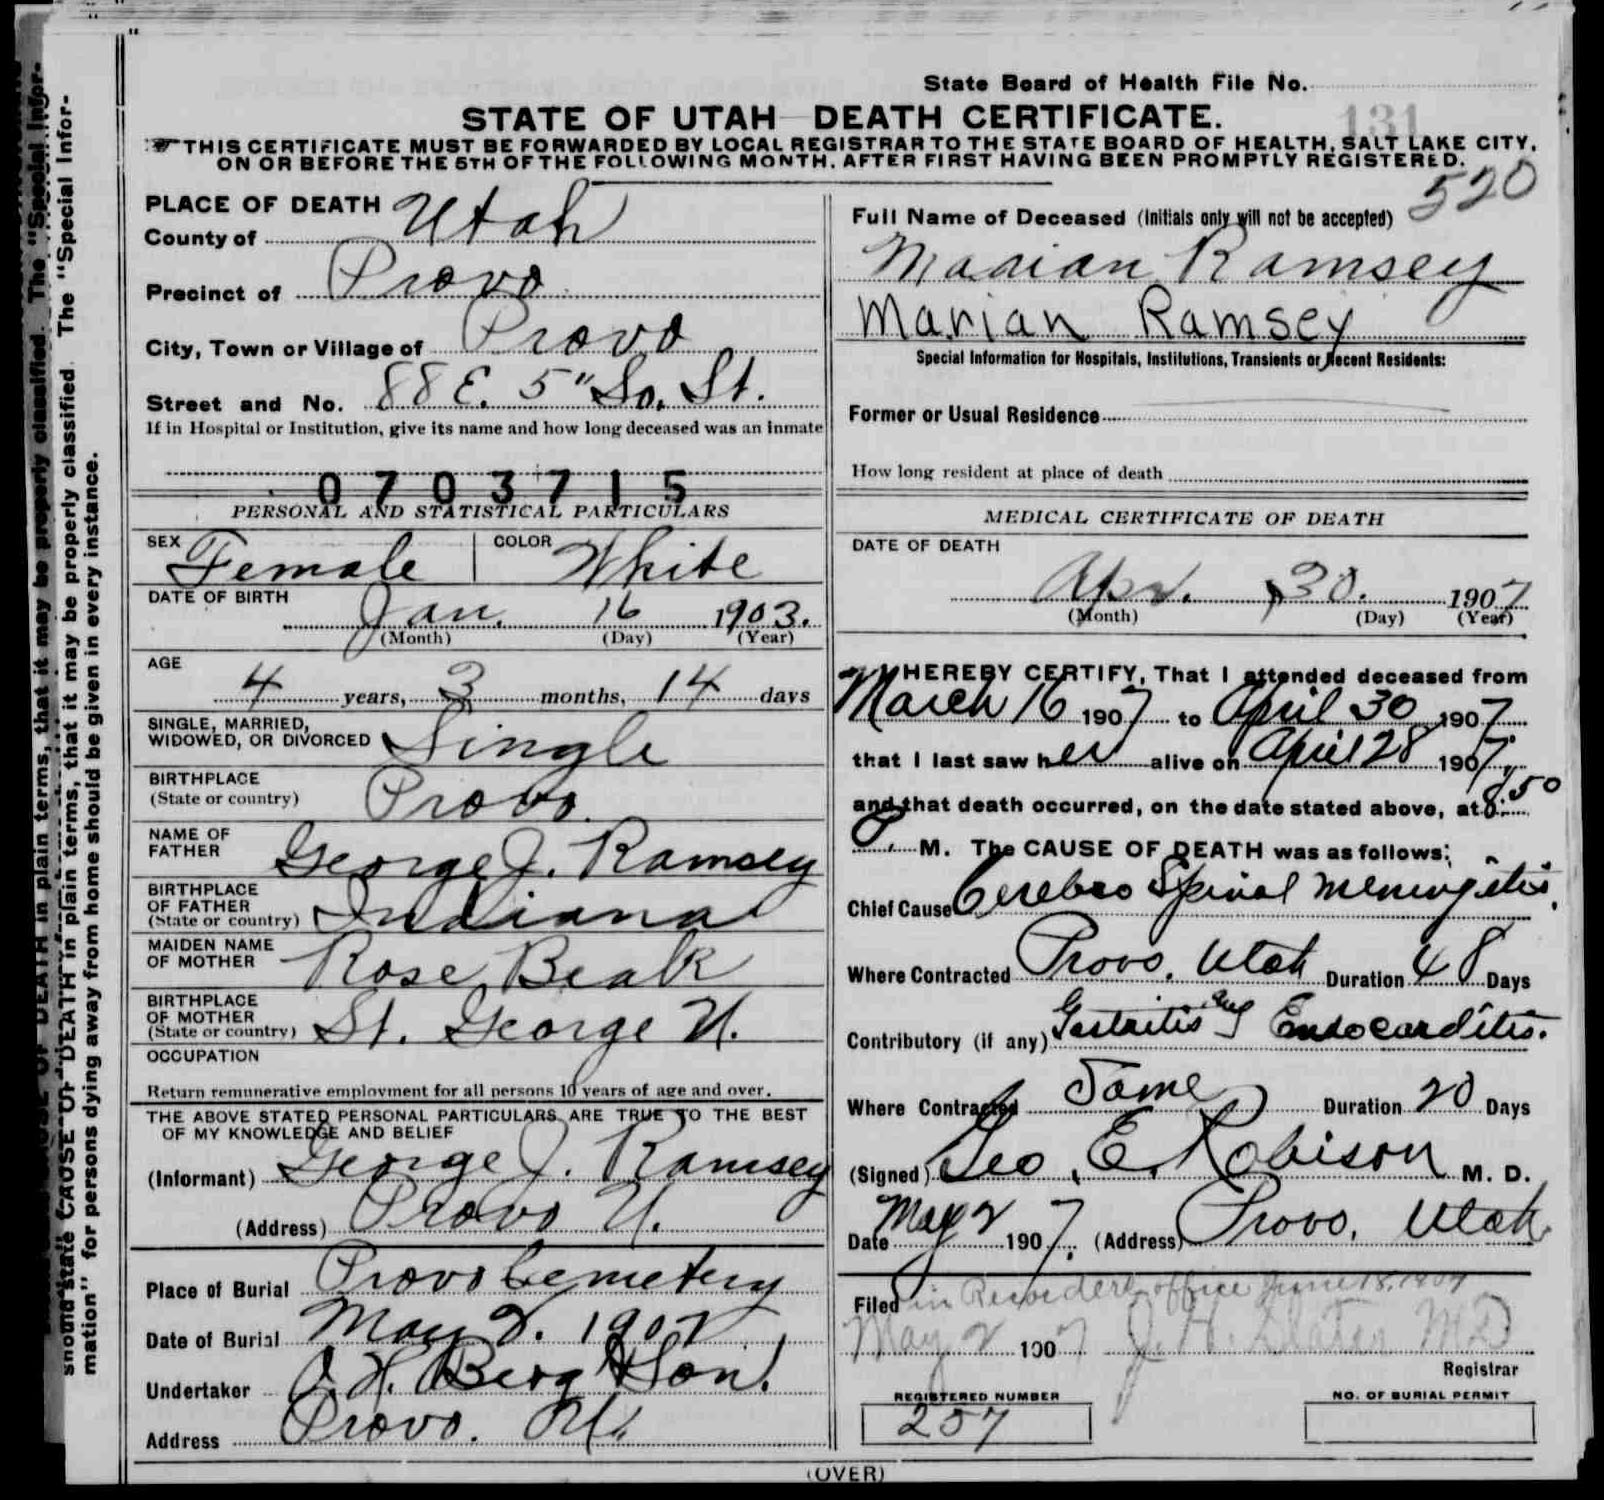 State Board of Health File No.
131
STATE OF UTAH DEATH CERTIFICATE.
THIS CERTIFICATE MUST BE FORWARDED BY LOCAL REGISTRAR TO THE STATE BOARD OF HEALTH, SALT LAKE CITY,
ON OR BEFORE THE 5TH OF THE FOLLOWING MONTH, AFTER FIRST HAVING BEEN PROMPTLY REGISTERED.
520
PLACE OF DEATH
County of Utah
Precinct of Provo
City, Town or Village of Provo
Street and No. 88 E. 5" So. St.
If in Hospital or Institution, give its name and how long deceased was an inmate
0703715
PERSONAL AND STATISTICAL PARTICULARS
SEX Female COLOR White
DATE OF BIRTH
Jan. 16 1903.
(Month) (Day) (Year)
AGE
4 years, 3 months, 14 days
SINGLE, MARRIED,
WIDOWED, OR DIVORCED Single
BIRTHPLACE
(State or country) Provo.
NAME OF
FATHER George J. Ramsey
BIRTHPLACE
OF FATHER
(State or country) Indiana
MAIDEN NAME
OF MOTHER Rose Beak
BIRTHPLACE
OF MOTHER
(State or country) St. George U.
OCCUPATION
Return remunerative employment for all persons 10 years of age and over.
THE ABOVE STATED PERSONAL PARTICULARS ARE TRUE TO THE BEST
OF MY KNOWLEDGE AND BELIEF
(Informant) George J. Ramsey
(Address) Provo U.
Place of Burial Provo Cemetery
Date of Burial May 2. 1907
Undertaker O. H. Berg & Son.
Address Provo. U.
Full Name of Deceased (Initials only will not be accepted)
Marian Ramsey
Marian Ramsey
Special Information for Hospitals, Institutions, Transients or Recent Residents:
Former or Usual Residence
How long resident at place of death
MEDICAL CERTIFICATE OF DEATH
DATE OF DEATH
Apr. 30. 1907
(Month) (Day) (Year)
I HEREBY CERTIFY, That I attended deceased from
March 16 1907 to April 30 1907
that I last saw her alive on April 28 1907,
and that death occurred, on the date stated above, at 8:50
P. M. The CAUSE OF DEATH was as follows:
Chief Cause Cerebro Spinal Meningitis.
Where Contracted Provo, Utah Duration 48 Days
Contributory (if any) Gastritis and Endocarditis.
Where Contracted Same Duration 20 Days
(Signed) Geo. E. Robison M. D.
Date May 2 1907. (Address) Provo, Utah
Filed in Recorders office June 18, 1907
May 2 1907 J. H. Slater MD
Registrar
REGISTERED NUMBER
257
NO. OF BURIAL PERMIT
(OVER)
should state CAUSE OF DEATH in plain terms, that it may be properly classified. The "Special Infor-
mation" for persons dying away from home should be given in every instance.